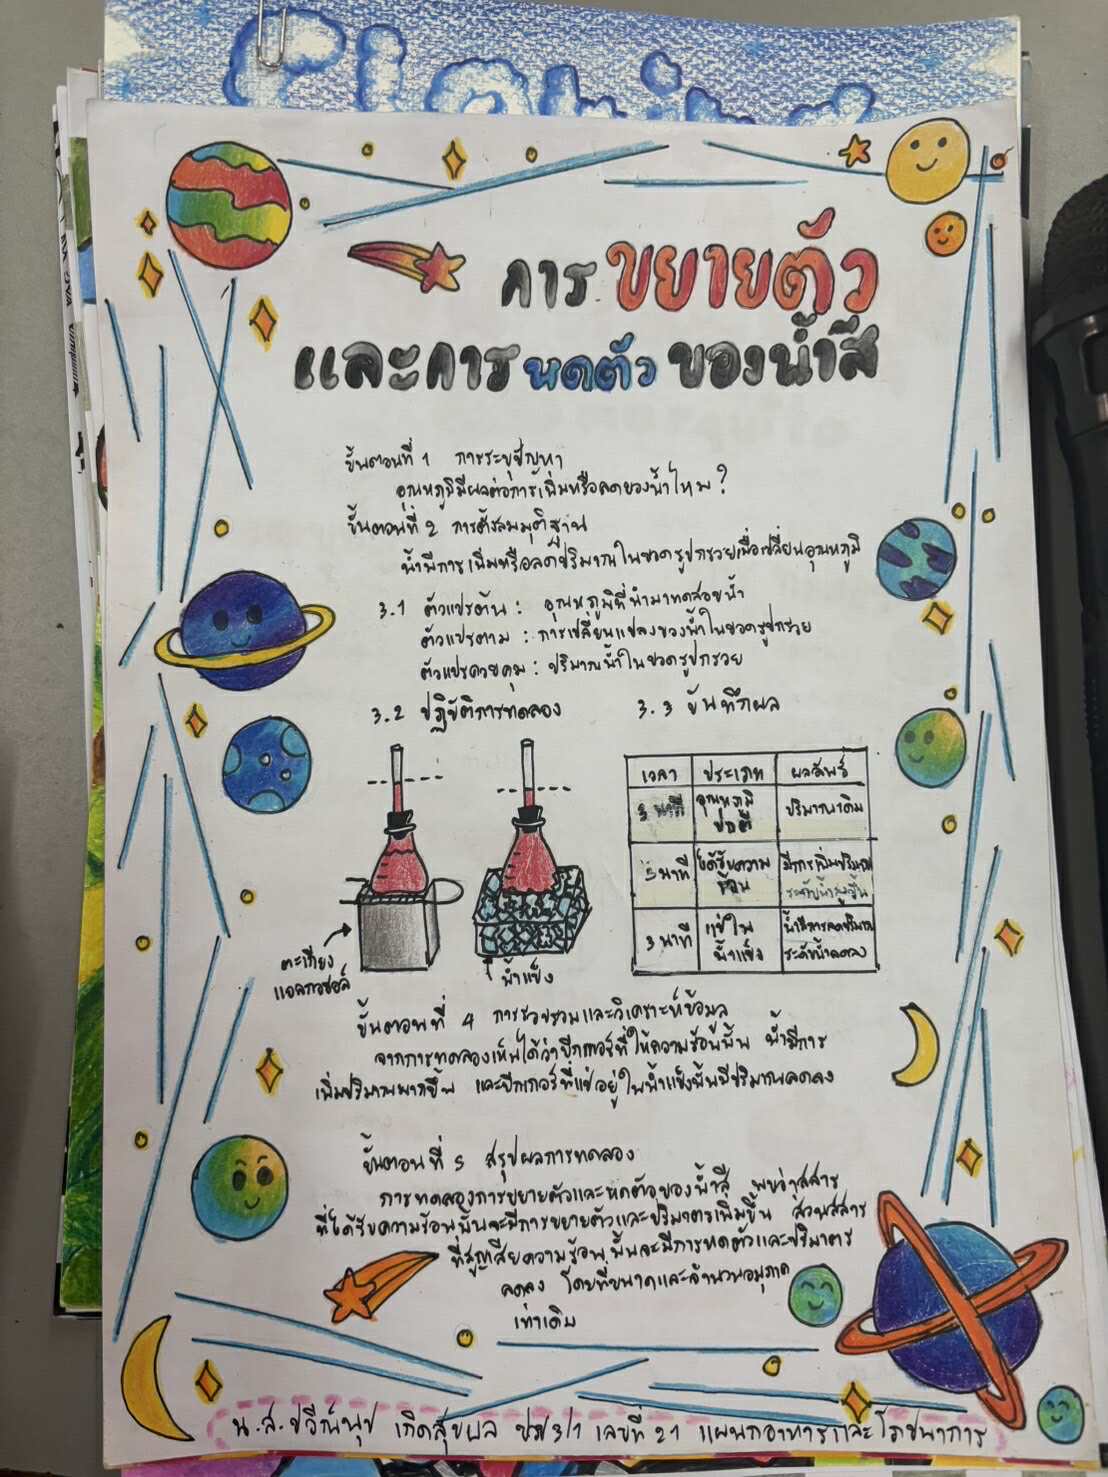 การขยายตัว
และการหดตัวของน้ำสี
ขั้นตอนที่ 1 การระบุปัญหา
อุณหภูมิมีผลต่อการเพิ่มหรือลดของน้ำไหม?
ขั้นตอนที่ 2 การตั้งสมมุติฐาน
น้ำมีการเพิ่มหรือลดปริมาณในขวดรูปกรวยเมื่อเปลี่ยนอุณหภูมิ
3.1 ตัวแปรต้น : อุณหภูมิที่นำมาทดสอบน้ำ
ตัวแปรตาม : การเปลี่ยนแปลงของน้ำในขวดรูปกรวย
ตัวแปรควบคุม : ปริมาณน้ำในขวดรูปกรวย
3.2 ปฏิบัติการทดลอง 3.3 บันทึกผล
เวลา ประเภท ผลลัพธ์
3 นาที อุณหภูมิ ปริมาณเดิม
ปกติ
3 นาที ได้รับความ มีการเพิ่มปริมาณ
ร้อน ระดับน้ำสูงขึ้น
3 นาที แช่ใน น้ำมีการลดปริมาณ
น้ำแข็ง ระดับน้ำลดลง
ตะเกียง
แอลกอฮอล์
น้ำแข็ง
ขั้นตอนที่ 4 การรวบรวมและวิเคราะห์ข้อมูล
จากการทดลองเห็นได้ว่าบีกเกอร์ที่ให้ความร้อนนั้น น้ำมีการ
เพิ่มปริมาณมากขึ้น และบีกเกอร์ที่แช่อยู่ในน้ำแข็งนั้นมีปริมาณลดลง
ขั้นตอนที่ 5 สรุปผลการทดลอง
การทดลองการขยายตัวและหดตัวของน้ำสี พบว่าสสาร
ที่ได้รับความร้อนนั้นจะมีการขยายตัวและปริมาตรเพิ่มขึ้น ส่วนสสาร
ที่สูญเสียความร้อนนั้นจะมีการหดตัวและปริมาตร
ลดลง โดยที่ขนาดและจำนวนอนุภาค
เท่าเดิม
น.ส.ปวีณ์นุช เกิดสุขผล ปวช3/1 เลขที่ 21 แผนกอาหารและโภชนาการ